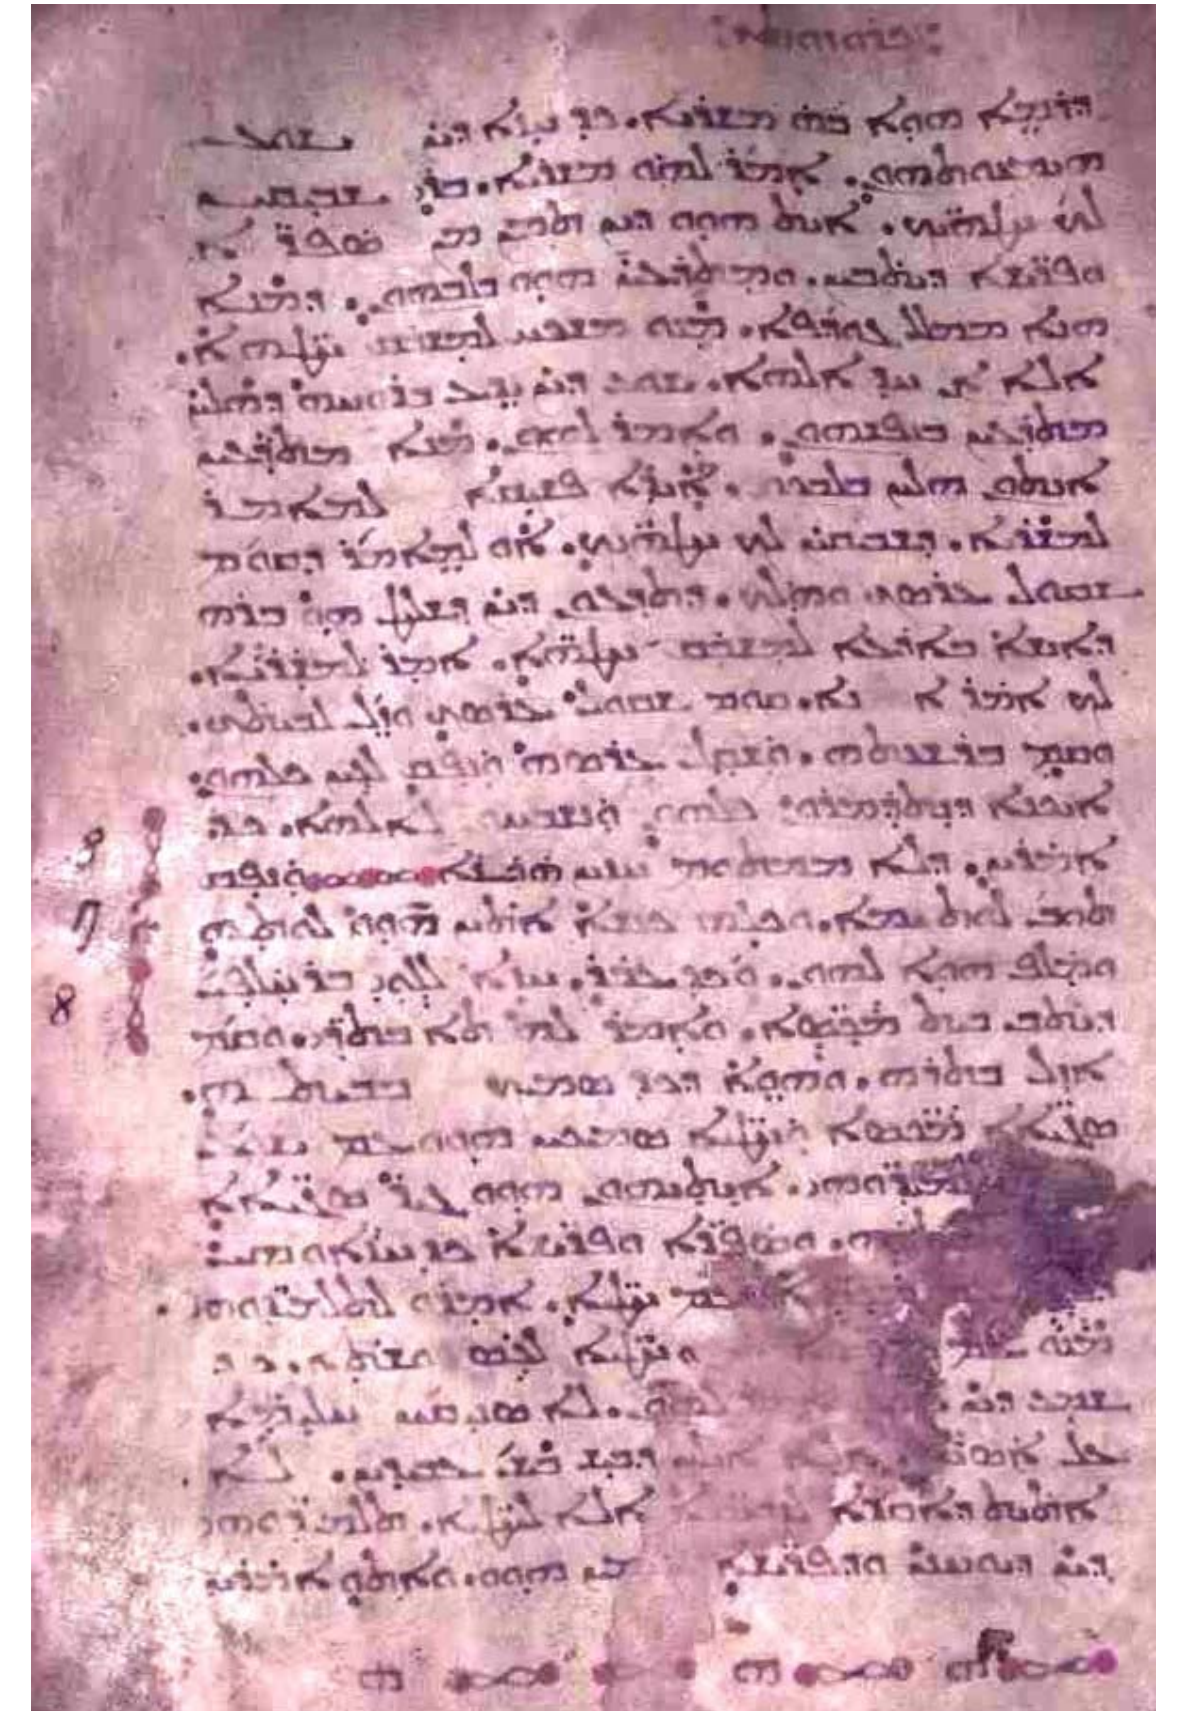 ܕܪܡܐ ܗܘܐ ܒܗ ܡܫܪܝܐ. ܟܕ ܚܙܐ ܕܝܢ ܝܫܘܥ
ܗܝܡܢܘܬܗܘܢ. ܐܡܪ ܠܗܘ ܡܫܪܝܐ. ܒܪܝ ܫܒܝܩܝܢ
ܠܟ ܚܛܗܝܟ. ܐܝܬ ܗܘܘ ܕܝܢ ܬܡܢ ܡܢ ܣܦܪܐ
ܘܦܪܝܫܐ ܕܝܬܒܝܢ. ܘܡܬܪܥܝܢ ܗܘܘ ܒܠܒܗܘܢ. ܕܡܢܐ
ܗܢܐ ܡܡܠܠ ܓܘܕܦܐ. ܡܢܘ ܡܫܟܚ ܠܡܫܒܩ ܚܛܗܐ.
ܐܠܐ ܐܢ ܚܕ ܐܠܗܐ. ܝܫܘܥ ܕܝܢ ܝܕܥ ܒܪܘܚܗ ܕܗܠܝܢ
ܡܬܪܥܝܢ ܒܢܦܫܗܘܢ. ܘܐܡܪ ܠܗܘܢ. ܡܢܐ ܡܬܪܥܝܢ
ܐܢܬܘܢ ܗܠܝܢ ܒܠܒܟܘܢ. ܐܝܕܐ ܦܫܝܩܐ ܠܡܐܡܪ
ܠܡܫܪܝܐ. ܕܫܒܝܩܝܢ ܠܟ ܚܛܗܝܟ. ܐܘ ܠܡܐܡܪ ܕܩܘܡ
ܫܩܘܠ ܥܪܣܟ ܘܗܠܟ. ܕܬܕܥܘܢ ܕܝܢ ܕܫܠܝܛ ܗܘ ܒܪܗ
ܕܐܢܫܐ ܒܐܪܥܐ ܠܡܫܒܩ ܚܛܗܐ. ܐܡܪ ܠܡܫܪܝܐ.
ܠܟ ܐܡܪ ܐܢܐ. ܩܘܡ ܫܩܘܠ ܥܪܣܟ ܘܙܠ ܠܒܝܬܟ.
ܘܩܡ ܒܪܫܥܬܗ. ܘܫܩܠ ܥܪܣܗ ܘܢܦܩ ܠܥܝܢ ܟܠܗܘܢ.
ܐܝܟܢܐ ܕܢܬܕܡܪܘܢ ܟܠܗܘܢ ܘܢܫܒܚܘܢ ܠܐܠܗܐ. ܟܕ
ܐܡܪܝܢ. ܕܠܐ ܡܡܬܘܡ ܚܙܝܢ ܗܟܢܐ ܘܢܦܩ
ܬܘܒ ܠܘܬ ܝܡܐ. ܘܟܠܗ ܟܢܫܐ ܐܬܝܢ ܗܘܘ ܠܘܬܗ
ܘܡܠܦ ܗܘܐ ܠܗܘܢ. ܘܟܕ ܥܒܪ. ܚܙܐ ܠܠܘܝ ܒܪ ܚܠܦܝ
ܕܝܬܒ ܒܝܬ ܡܟܣܐ. ܘܐܡܪ ܠܗ ܬܐ ܒܬܪܝ. ܘܩܡ
ܐܙܠ ܒܬܪܗ. ܘܗܘܐ ܕܟܕ ܣܡܝܟ ܒܒܝܬܗ.
ܣܓܝܐܐ ܡܟܣܐ ܘܚܛܝܐ ܣܡܝܟܝܢ ܗܘܘ ܥܡ ܝܫܘܥ
ܬܠܡܝܕܘܗܝ. ܐܝܬܝܗܘܢ ܗܘܘ ܓܝܪ ܣܓܝܐܐ
ܘܣܦܪܐ ܘܦܪܝܫܐ ܟܕ ܚܙܐܘܗܝ
ܥܡ ܚܛܝܐ. ܐܡܪܘ ܠܬܠܡܝܕܘܗܝ.
ܡܢܘ ܥܡ ܘܚܛܝܐ ܠܥܣ ܘܫܬܐ. ܟܕ
ܫܡܥ ܕܝܢ ܠܗܘܢ. ܠܐ ܣܢܝܩܝܢ ܚܠܝܡܐ
ܥܠ ܐܣܝܐ ܐܠܐ ܐܝܠܝܢ ܕܒܝܫ ܒܝܫ ܥܒܝܕܝܢ. ܠܐ
ܐܬܝܬ ܕܐܩܪܐ ܐܠܐ ܠܚܛܝܐ. ܬܠܡܝܕܘܗܝ
ܕܝܢ ܕܝܘܚܢܢ ܘܕܦܪܝܫܐ ܗܘܘ. ܘܐܬܘ ܘܐܡܪܝܢ